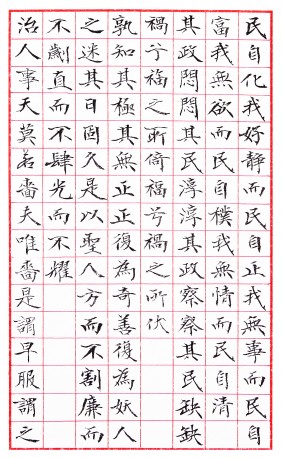 民自化我好靜而民自正我無事而民自
富我無欲而民自樸我無情而民自清
其政悶悶其民淳淳其政察察其民缺缺
禍兮福之所倚福兮禍之所伏
孰知其極其無正正復為奇善復為妖人
之迷其日固久是以聖人方而不割廉而
不劌直而不肆光而不耀
治人事天莫若嗇夫唯嗇是謂早服謂之